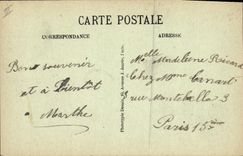 CARTE POSTALE
CORRESPONDANCE
ADRESSE
Bons souvenirs
et à bientôt
Marthe
Melle Madeleine Ricard
Chez Mme
rue Montebello 3
Paris 15ème